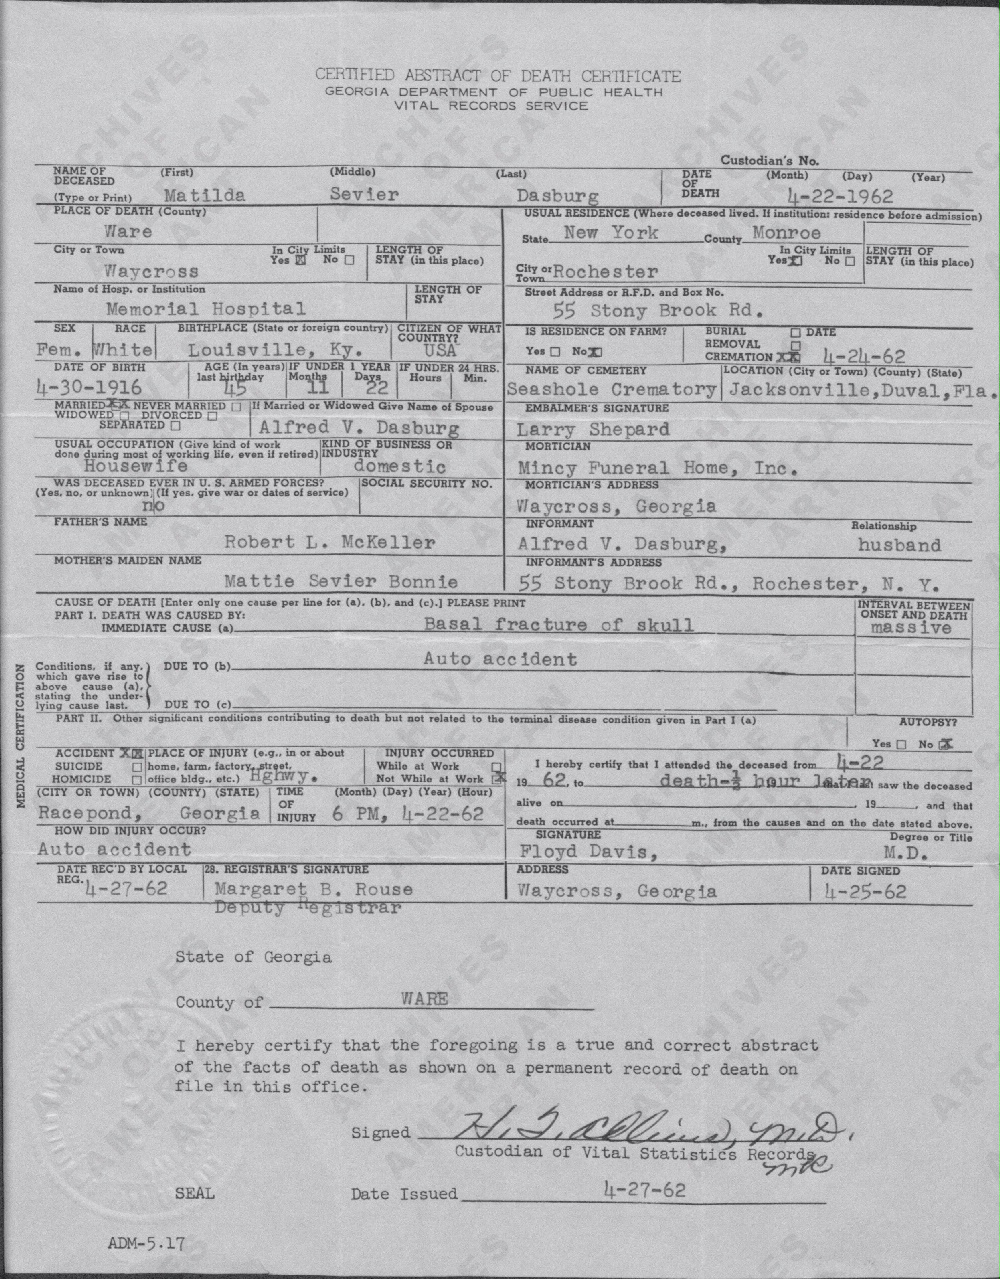 CERTIFIED ABSTRACT OF DEATH CERTIFICATE
GEORGIA DEPARTMENT OF PUBLIC HEALTH
VITAL RECORDS SERVICE
Custodian's No.
NAME OF DECEASED (First) (Middle) (Last) DATE OF DEATH (Month) (Day) (Year)
(Type or Print) Matilda Sevier Dasburg 4-22-1962
PLACE OF DEATH (County)
Ware
USUAL RESIDENCE (Where deceased lived. If institution: residence before admission)
State New York County Monroe
City or Town In City Limits Yes ☒ No ☐ LENGTH OF STAY (in this place)
Waycross
City or Town Rochester In City Limits Yes ☒ No ☐ LENGTH OF STAY (in this place)
Name of Hosp. or Institution LENGTH OF STAY
Memorial Hospital
Street Address or R.F.D. and Box No.
55 Stony Brook Rd.
SEX RACE BIRTHPLACE (State or foreign country) CITIZEN OF WHAT COUNTRY?
Fem. White Louisville, Ky. USA
IS RESIDENCE ON FARM? Yes ☐ No ☒
BURIAL ☐ DATE
REMOVAL ☐
CREMATION XX 4-24-62
DATE OF BIRTH AGE (In years last birthday IF UNDER 1 YEAR Months Days IF UNDER 24 HRS. Hours Min.
4-30-1916 45 11 22
NAME OF CEMETERY LOCATION (City or Town) (County) (State)
Seashole Crematory Jacksonville,Duval,Fla.
MARRIED XX NEVER MARRIED ☐ If Married or Widowed Give Name of Spouse
WIDOWED ☐ DIVORCED ☐
SEPARATED ☐ Alfred V. Dasburg
EMBALMER'S SIGNATURE
Larry Shepard
USUAL OCCUPATION (Give kind of work done during most of working life, even if retired) KIND OF BUSINESS OR INDUSTRY
Housewife domestic
MORTICIAN
Mincy Funeral Home, Inc.
WAS DECEASED EVER IN U. S. ARMED FORCES? SOCIAL SECURITY NO.
(Yes, no, or unknown) (If yes, give war or dates of service)
no
MORTICIAN'S ADDRESS
Waycross, Georgia
FATHER'S NAME
Robert L. McKeller
INFORMANT Relationship
Alfred V. Dasburg, husband
MOTHER'S MAIDEN NAME
Mattie Sevier Bonnie
INFORMANT'S ADDRESS
55 Stony Brook Rd., Rochester, N. Y.
MEDICAL CERTIFICATION
CAUSE OF DEATH [Enter only one cause per line for (a), (b), and (c).] PLEASE PRINT
INTERVAL BETWEEN ONSET AND DEATH
PART I. DEATH WAS CAUSED BY:
IMMEDIATE CAUSE (a) Basal fracture of skull massive
Conditions, if any, which gave rise to above cause (a), stating the underlying cause last.
DUE TO (b) Auto accident
DUE TO (c)
PART II. Other significant conditions contributing to death but not related to the terminal disease condition given in Part I (a)
AUTOPSY?
Yes ☐ No ☒
ACCIDENT XX PLACE OF INJURY (e.g., in or about home, farm, factory, street, office bldg., etc.) Hghwy.
SUICIDE ☐
HOMICIDE ☐
INJURY OCCURRED
While at Work ☐
Not While at Work ☒
I hereby certify that I attended the deceased from 4-22
19 62, to death-½ hour later that I last saw the deceased
alive on , 19 , and that
death occurred at m., from the causes and on the date stated above.
(CITY OR TOWN) (COUNTY) (STATE) TIME OF INJURY (Month) (Day) (Year) (Hour)
Racepond, Georgia 6 PM, 4-22-62
HOW DID INJURY OCCUR?
Auto accident
SIGNATURE Degree or Title
Floyd Davis, M.D.
DATE REC'D BY LOCAL REG. 4-27-62
28. REGISTRAR'S SIGNATURE
Margaret B. Rouse
Deputy Registrar
ADDRESS DATE SIGNED
Waycross, Georgia 4-25-62
State of Georgia
County of WARE
I hereby certify that the foregoing is a true and correct abstract
of the facts of death as shown on a permanent record of death on
file in this office.
Signed
Custodian of Vital Statistics Records
SEAL Date Issued 4-27-62
ADM-5.17
ARCHIVES OF AMERICAN ART